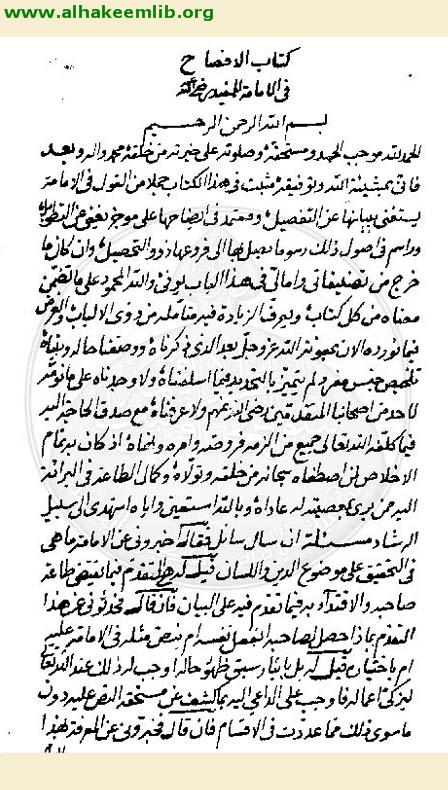 www.alhakeemlib.org
كتاب الافصاح
فى الامامة للمفيد رضى الله عنه
بسم الله الرحمن الرحيم
الحمد لله موجب الحمد ومستحقه وصلوته على خيرته من خلقه محمد وآله وبعد
فانى بمشيئة الله وتوفيقه مثبت فى هذا الكتاب جملا من القول فى الامامة
يستغنى ببيانها عن التفصيل ومعتمد فى ايضاحها على موجز يغنى عن التطويل
وراسم فى اصول ذلك رسوما يصل بها الى فروعها ذوو التحصيل وان كان ما
خرج من تصنيفاتى وامالى فى هذا الباب يوفى والله المحمود على ما تضمن
معناه من كل كتاب ويبر فى الزيادة فيه متامله من ذوى الالباب والغرض
فيما نورده الان بمعونة الله عز وجل بعد الذى ذكرناه ووصفنا حاله وبيناه
تلخيص جنس مفرد لم يتميز بالتحديد فيما اسلفناه ولا وجدناه على ما نؤمه
لاحد من اصحابنا المتقدمين رضى الله عنهم ولا عرفناه مع صدق الحاجة اليه
فيما كلفه الله تعالى جميع من الزمه فروضه وامره ونهاه اذ كان به تمام
الاخلاص لمن اصطفاه سبحانه من خلقه وتولاه وكمال الطاعة فى البراءة
اليه ممن برئ بمعصيته له عاداه وبالله استعين واياه استهدى الى سبيل
الرشاد مسئلة ان سال سائل فقال خبرونى عن الامامة ما هى
فى التحقيق على موضوع الدين واللسان قيل له هى التقدم فيما يقتضى طاعة
صاحبه والاقتداء به فيما تقدم فيه على البيان فان قال فحدثونى عن هذا
التقدم بماذا حصل لصاحبه ابفعل نفسه ام بنص مثله فى الامامة عليه
ام باختيار قيل له بل بايثار سبق ظهور حاله اوجب له ذلك عند الله تعالى
ليزكى اعماله فاوجب على الداعى اليه بما يكشف عن مستحقه النص عليه دون
ما سوى ذلك مما عددت فى الاقسام فان قال فخبرونى عن المعرفة بهذا